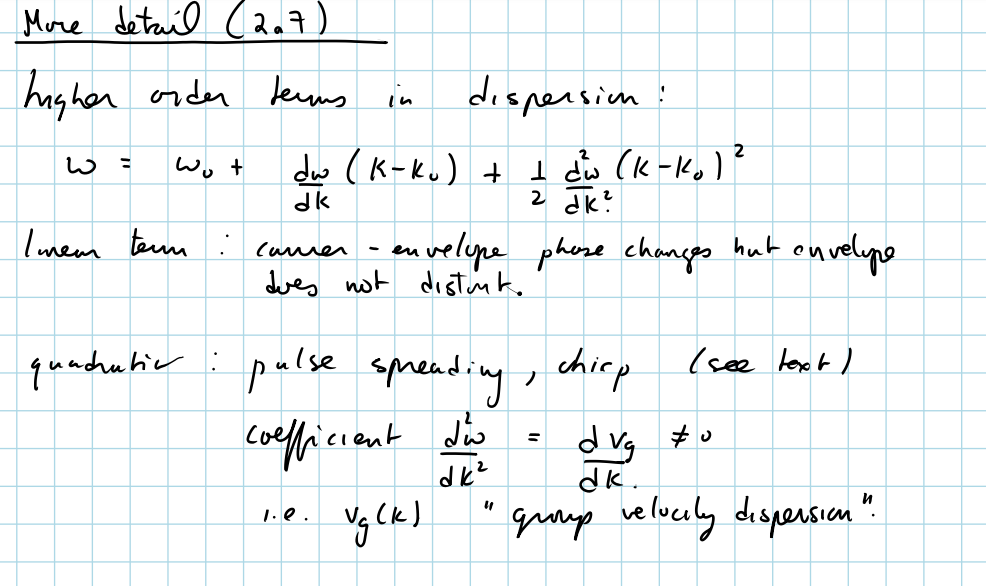 More detail (2.7)
higher order terms in dispersion :
ω = ω₀ + dω/dk (k-k₀) + 1/2 d²ω/dk² (k-k₀)²
linear term : carrier-envelope phase changes but envelope
does not distort.
quadratic : pulse spreading, chirp (see text)
coefficient d²ω/dk² = dvg/dk ≠ 0
i.e. vg(k) "group velocity dispersion".